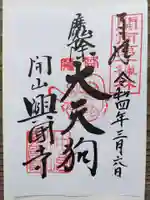 奉拝 令和四年三月六日
魔除 大天狗
開山 興國寺